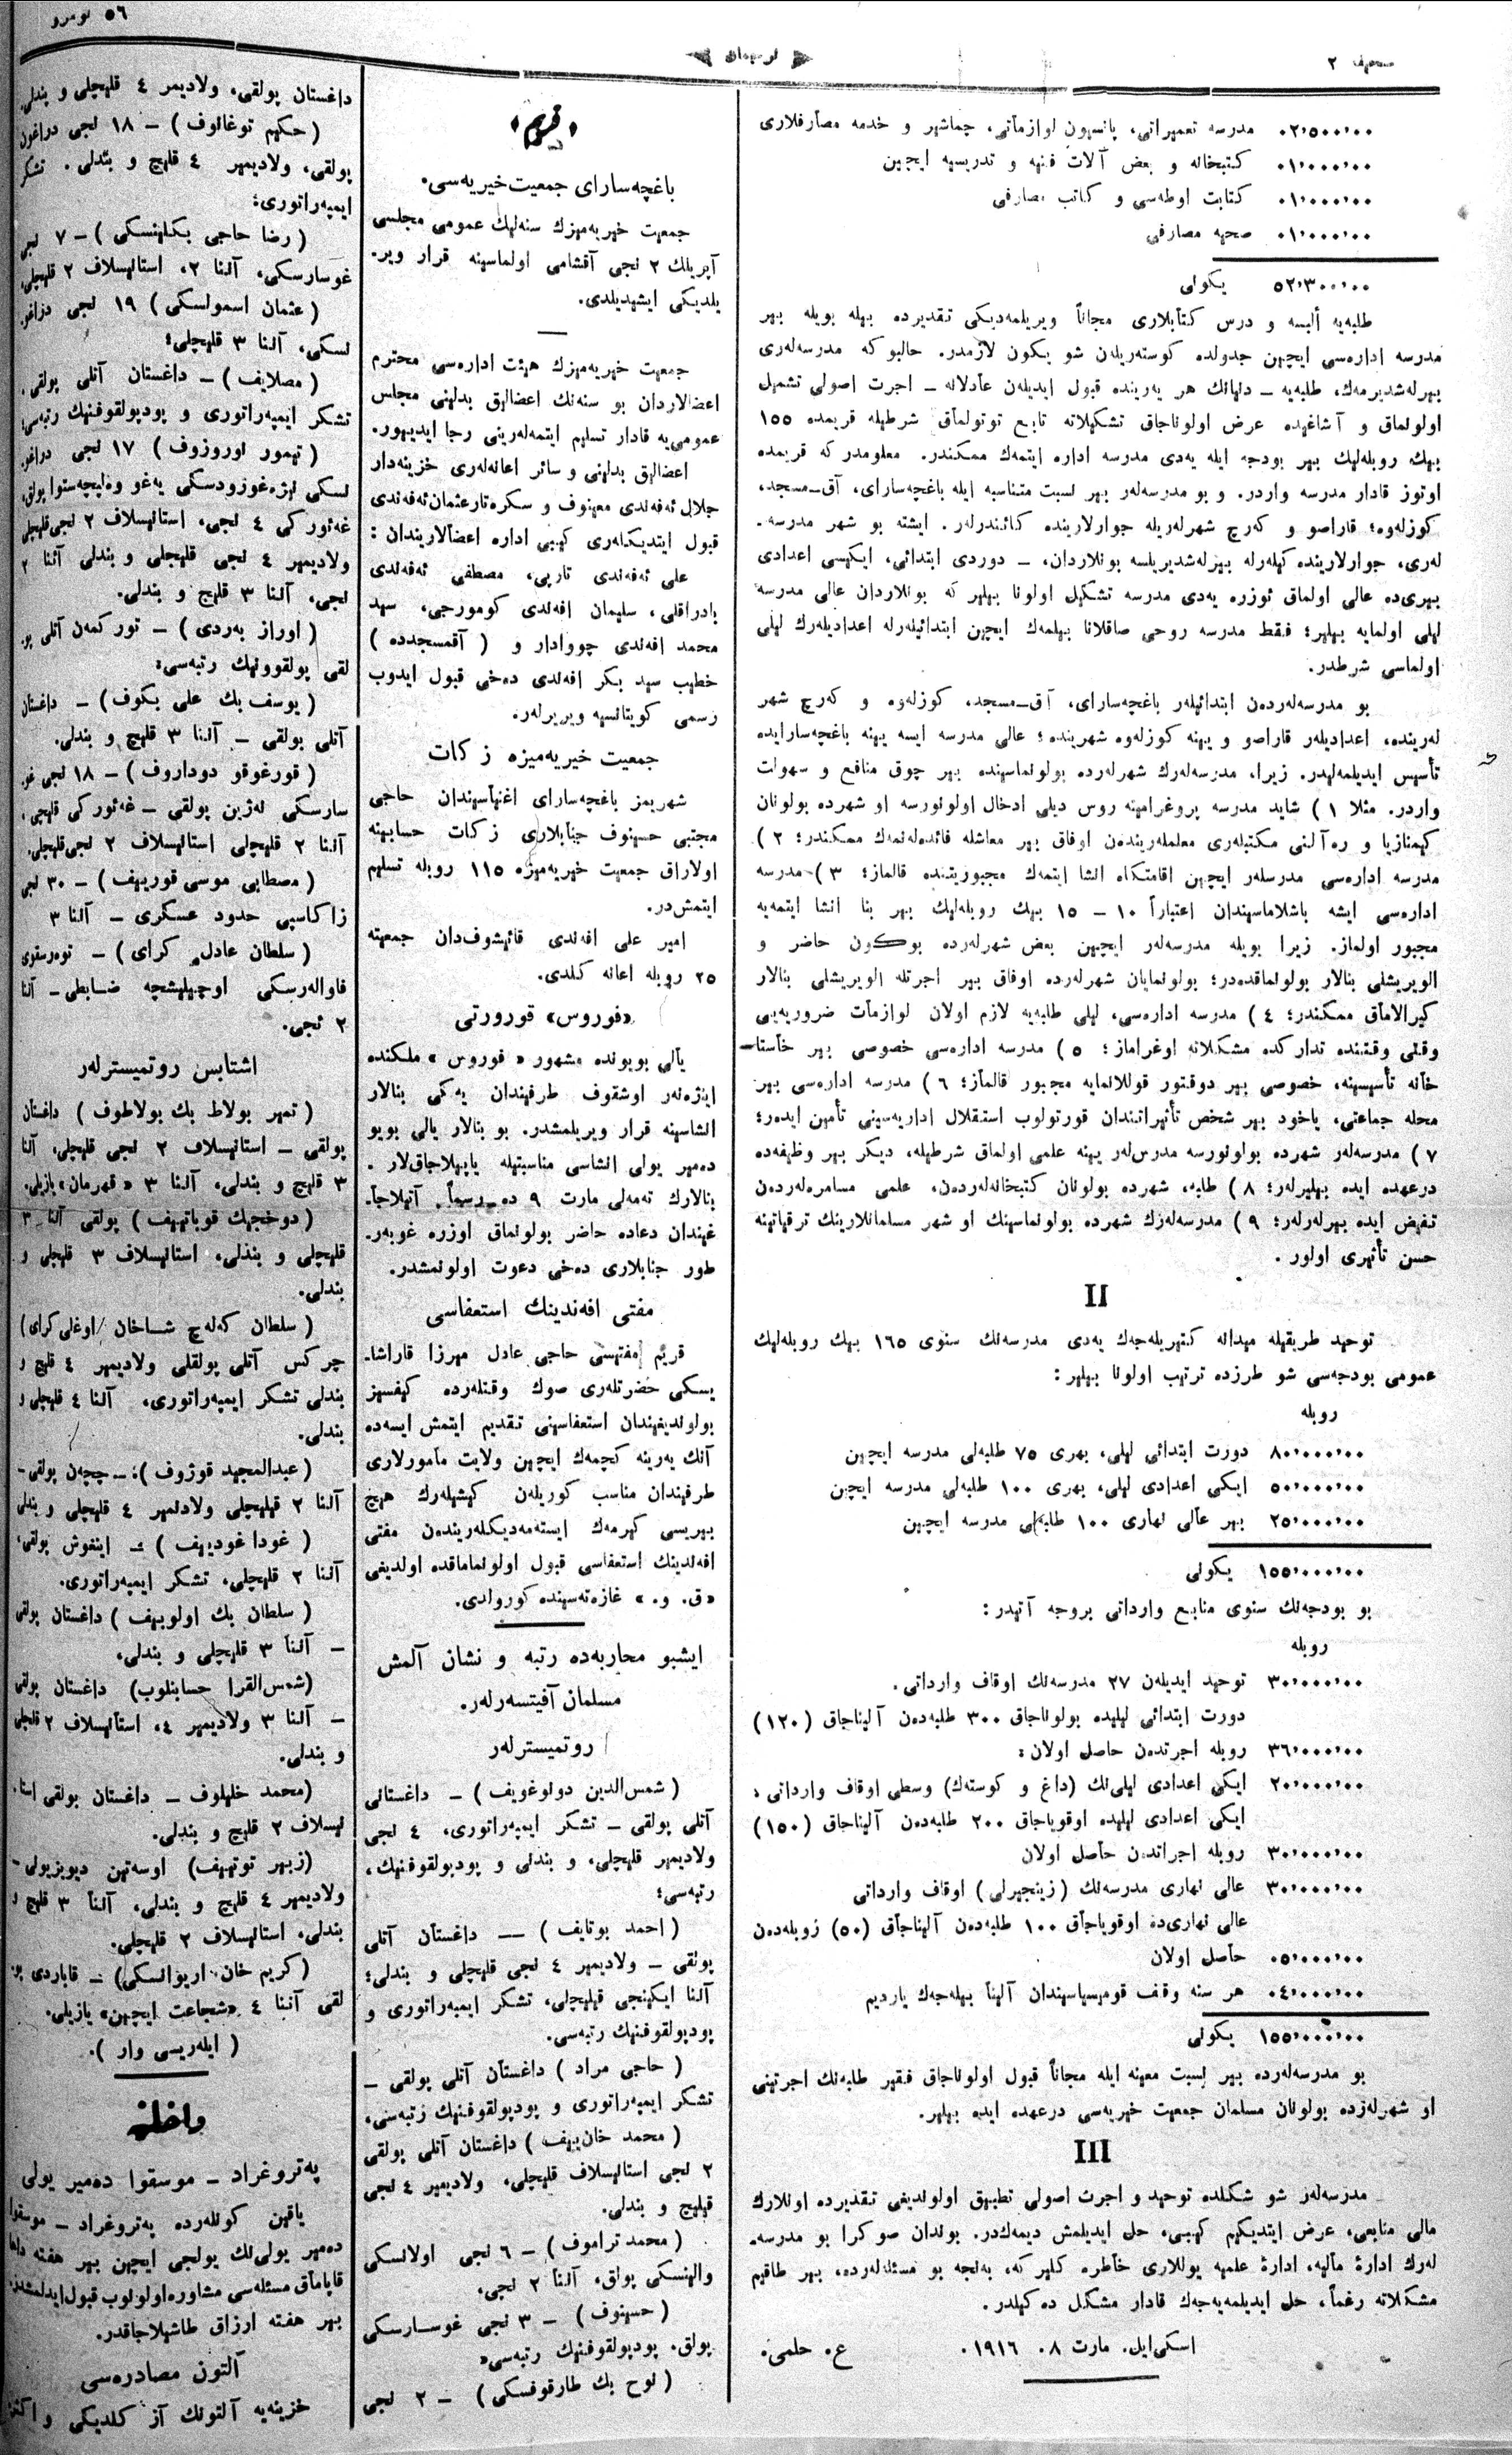 صحیفه ٢
ترجمان
٥٦ نومرو
٠٢٬٥٠٠٬٠٠ مدرسه تعمیراتی، پانسیون لوازماتی، چماشیر و خدمه مصارفلاری
٠١٬٠٠٠٬٠٠ کتبخانه و بعض آلات فنیه و تدریسیه ایچین
٠١٬٠٠٠٬٠٠ کتابت اوطه‌سی و کاتب مصارفی
٠١٬٠٠٠٬٠٠ صحیه مصارفی
٥٢٬٣٠٠٬٠٠ یکونی
طلبه‌یه ألبسه و درس کتابلاری مجاناً ویریلمه‌دیکی تقدیرده بیله بویله بیر
مدرسه اداره‌سی ایچین جدولده کوسته‌ریلن شو یکون لازمدر. حالبو که مدرسه‌لەری
بیرلەشدیرمەك، طلبه‌یه ــ دلیانك هر یەرینده قبول ایدیلەن عادلانه ــ اجرت اصولی تشمیل
اولونماق و آشاغیده عرض اولوناجاق تشکیلاته تابع توتولماق شرطیله قریمده ١٥٥
بیڭ روبلەلیك بیر بودجه ایله یەدی مدرسه اداره ایتمەك ممکندر. معلومدر که قریمده
اوتوز قادار مدرسه واردر. و بو مدرسه‌لەر بیر نسبت متناسبه ایله باغچه‌سارای، آق‌ــ‌مسجد،
کوزلەوه؛ قاراصو و کەرچ شهرلەریله جوارلارینده کائندرلەر. ایشته بو شهر مدرسه‌ـ
لەری، جوارلارینده کیلەرله بیرلەشدیریلسه بونلاردان، ــ دوردی ابتدائی، ایکیسی اعدادی
بیری‌ده عالی اولماق ئوزره یەدی مدرسه تشکیل اولونا بیلیر که بونلاردان عالی مدرسه
لیلی اولمایه بیلیر؛ فقط مدرسه روحی صاقلانا بیلمەك ایچین ابتدائیلەرله اعدادیلەرك لیلی
اولماسی شرطدر.
بو مدرسه‌لەردەن ابتدائیلەر باغچه‌سارای، آق‌ــ‌مسجد، کوزلەوه و کەرچ شهر
لەرینده، اعدادیلەر قاراصو و یینه کوزلەوه شهرینده؛ عالی مدرسه ایسه یینه باغچه‌سارایده
تأسیس ایدیلمەلیدر. زیرا، مدرسه‌لەرك شهرلەرده بولونماسینده بیر چوق منافع و سهولت
واردر. مثلا ١ ) شاید مدرسه پروغرامینه روس دیلی ادخال اولونورسه او شهرده بولونان
گیمنازیا و رەآلنی مکتبلەری معلملەریندەن اوفاق بیر معاشله فائده‌لەنمەك ممکندر؛ ٢ )
مدرسه اداره‌سی مدرسلەر ایچین اقامتکاه انشا ایتمەك مجبوریتنده قالماز؛ ٣ ) مدرسه
اداره‌سی ایشه باشلاماسیندان اعتباراً ١٠ ــ ١٥ بیڭ روبلەلیك بیر بنا انشا ایتمەیه
مجبور اولماز. زیرا بویله مدرسه‌لەر ایچین بعض شهرلەرده بوکون حاضر و
الویریشلی بنالار بولونماقده‌در؛ بولونمایان شهرلەرده اوفاق بیر اجرتله الویریشلی بنالار
کیرالاماق ممکندر؛ ٤ ) مدرسه اداره‌سی، لیلی طلبه‌یه لازم اولان لوازمات ضروریه‌یی
وقتی وقتنده تدارکده مشکلاته اوغراماز؛ ٥ ) مدرسه اداره‌سی خصوصی بیر خاستاــ
خانه تأسیسینه، خصوصی بیر دوقتور قوللانمایه مجبور قالماز؛ ٦ ) مدرسه اداره‌سی بیر
محله جماعتی، یاخود بیر شخص تأثیراتندان قورتولوب استقلال اداریه‌سینی تأمین ایدەر؛
٧ ) مدرسه‌لەر شهرده بولونورسه مدرس‌لەر یینه علمی اولماق شرطیله، دیکر بیر وظیفه‌ده
درعهده ایده بیلیرلەر؛ ٨ ) طلبه، شهرده بولونان کتبخانه‌لەردەن، علمی مسامره‌لەردەن
تفیض ایده بیرلەرلەر؛ ٩ ) مدرسه‌لەرك شهرده بولونماسینك او شهر مسلمانلارینك ترقیاتینه
حسن تأثیری اولور .
II
توحید طریقیله میدانه کتیریلەجەك یەدی مدرسه‌نك سنوی ١٦٥ بیڭ روبلەلیك
عمومی بودجه‌سی شو طرزده ترتیب اولونا بیلیر :
روبله
٨٠٬٠٠٠٬٠٠ دورت ابتدائی لیلی، بهری ٧٥ طلبه‌لی مدرسه ایچین
٥٠٬٠٠٠٬٠٠ ایکی اعدادی لیلی، بهری ١٠٠ طلبه‌لی مدرسه ایچین
٢٥٬٠٠٠٬٠٠ بیر عالی نهاری ١٠٠ طلبه‌لی مدرسه ایچین
١٥٥٬٠٠٠٬٠٠ یکونی
بو بودجه‌نك سنوی منابع وارداتی بروجه آتیدر :
روبله
٣٠٬٠٠٠٬٠٠ توحید ایدیلەن ٢٧ مدرسه‌نك اوقاف وارداتی .
دورت ابتدائی لیلیده بولوناجاق ٣٠٠ طلبه‌دەن آلیناجاق (١٢٠)
٣٦٬٠٠٠٬٠٠ روبله اجرتدەن حاصل اولان :
٢٠٬٠٠٠٬٠٠ ایکی اعدادی لیلی‌نك (داغ و کوستەك) وسطی اوقاف وارداتی ،
ایکی اعدادی لیلیده اوقویاجاق ٢٠٠ طلبه‌دەن آلیناجاق (١٥٠)
٣٠٬٠٠٠٬٠٠ روبله اجراتدن حاصل اولان
٣٠٬٠٠٠٬٠٠ عالی نهاری مدرسه‌نك (زینجیرلی) اوقاف وارداتی
عالی نهاری‌ده اوقویاجاق ١٠٠ طلبه‌دەن آلیناجاق (٥٠) روبله‌دەن
٠٥٬٠٠٠٬٠٠ حاصل اولان
٠٤٬٠٠٠٬٠٠ هر سنه وقف قومیسیاسیندان آلینا بیلەجەك یاردیم
١٥٥٬٠٠٠٬٠٠ یکونی
بو مدرسه‌لەرده بیر نسبت معینه ایله مجاناً قبول اولوناجاق فقیر طلبه‌نك اجرتینی
او شهرلەرده بولونان مسلمان جمعیت خیریه‌سی درعهده ایده بیلیر.
III
مدرسه‌لەر شو شکلده توحید و اجرت اصولی تطبیق اولوندیغی تقدیرده اونلارك
مالی منابعی، عرض ایتدیکیم کیبی، حل ایدیلمش دیمەك‌در. بوندان صوکرا بو مدرسه‌ـ
لەرك ادارۀ مالیه، ادارۀ علمیه یوللاری خاطره کلیر که، بەنجه بو مسئله‌لەرده، بیر طاقیم
مشکلاته رغماً، حل ایدیلمەیەجەك قادار مشکل دەکیلدر.
اسکی‌ایل. مارت ٠٨ ١٩١٦. ع. حلمی.
قریم
باغچه‌سارای جمعیت خیریه‌سی.
جمعیت خیریه‌میزك سنه‌لیك عمومی مجلسی
آپریلك ٢ نجی آقشامی اولماسینه قرار ویر.
یلدیکی ایشیدیلدی.
جمعیت خیریه‌میزك هیئت اداره‌سی محترم
اعضالاردان بو سنه‌نك اعضالیق بدلینی مجلس
عمومی‌یه قادار تسلیم ایتمەلەرینی رجا ایدییور.
اعضالیق بدلینی و سائر اعانه‌لەری خزینه‌دار
جلال ئەفەندی معینوف و سکره‌تار عثمان ئەفەندی
قبول ایتدیکلەری کیبی اداره اعضالاریندان :
علی ئەفەندی تارپی، مصطفی ئەفەندی
بادراقلی، سلیمان افەندی کومورجی، سید
محمد افەندی چووادار و ( آقمسجدده )
خطیب سید بکر افەندی دەخی قبول ایدوب
رسمی کویتانسیه ویریرلەر.
جمعیت خیریه‌میزه زکات
شهریمز باغچه‌سارای اغنیاسیندان حاجی
مجتبی حسینوف جنابلاری زکات حسابینه
اولاراق جمعیت خیریه‌میزه ١١٥ روبله تسلیم
ایتمش‌در.
امیر علی افەندی قائیشوف‌دان جمعیته
٢٥ روبله اعانه کلدی.
«فوروس» قورورتی
یالی بویونده مشهور « فوروس » ملکنده
اینژەنەر اوشقوف طرفیندان یەکی بنالار
انشاسینه قرار ویریلمشدر. بو بنالار یالی بویو
دەمیر یولی انشاسی مناسبتیله یاپیلاجاق‌لار .
بنالارك تەمەلی مارت ٩ ده رسماً آتیلاجاـ
غیندان دعاده حاضر بولونماق اوزره غوبەرـ
طور جنابلاری دەخی دعوت اولونمشدر.
مفتی افەندینك استعفاسی
قریم مفتیسی حاجی عادل میرزا قاراشاـ
یسکی حضرتلەری صوك وقتلەرده کیفسیز
بولوندیغیندان استعفاسینی تقدیم ایتمش ایسەده
آنك یەرینه کچمەك ایچین ولایت مأمورلاری
طرفیندان مناسب کوریلەن کیشیلەرك هیچ
بیریسی کیرمەك ایستەمەدیکلەریندەن مفتی
افەندینك استعفاسی قبول اولونماماقده اولدیغی
«ق. و.» غازه‌ته‌سینده کورولدی.
ایشبو محاربه‌ده رتبه و نشان آلمش
مسلمان آفیتسەرلەر.
روتمیسترلەر
( شمس‌الدین دولوغویف ) ــ داغستانی
آتلی پولقی ــ تشکر ایمپەراتوری، ٤ نجی
ولادیمیر قلیچلی، و بندلی و پودپولقوفنیك،
رتبه‌سی؛
( احمد بوتایف ) ــ داغستان آتلی
پولقی ــ ولادیمیر ٤ نجی قلیچلی و بندلی؛
آننا ایکینجی قیلیچلی، تشکر ایمپەراتوری و
پودپولقوفنیك رتبه‌سی.
( حاجی مراد ) داغستان آتلی پولقی ــ
تشکر ایمپەراتوری و پودپولقوفنیك رتبه‌سی،
( محمد خان‌ییف ) داغستان آتلی پولقی
٢ نجی استانیسلاف قلیچلی، ولادیمیر ٤ نجی
قیلیچ و بندلی.
( محمد تراموف ) ــ ٦ نجی اولانسکی
والینسکی پولق، آننا ٢ نجی،
( حسینوف ) ــ ٣ نجی غوسارسکی
پولق. پودپولقوفنیك رتبه‌سی،
( نوح بك طارقوفسکی ) ــ ٢ نجی
داغستان پولقی، ولادیمر ٤ قلیچلی و بندلی،
( حکیم توغانوف ) ــ ١٨ نجی دراغون
پولقی، ولادیمیر ٤ قلیچ و بندلی . تشکر
ایمپەراتوری؛
( رضا حاجی بکلینسکی ) ــ ٧ نجی
غوسارسکی، آننا ٢، استانیسلاف ٢ قلیچلی،
( عثمان اسمولسکی ) ١٩ نجی دراغو.
نسکی، آننا ٣ قلیچلی؛
( مصلایف ) ــ داغستان آتلی پولقی .
تشکر ایمپەراتوری و پودپولقوفنیك رتبه‌سی؛
( تیمور نوروزوف ) ١٧ نجی دراغو.
نسکی نیژەغورودسکی یەغو وەلیچەستوا پولق،
غەئورکی ٤ نجی، استانیسلاف ٢ نجی قلیچلی
ولادیمیر ٤ نجی قلیچلی و بندلی آننا ٢
نجی، آننا ٣ قلیچ و بندلی.
( اوراز بەردی ) ــ تورکمەن آتلی پو.
لقی پولقوونیك رتبه‌سی؛
( یوسف بك علی بکوف) ــ داغستان
آتلی بولقی ــ آننا ٣ قلیچ و بندلی.
( قورغوقو دوداروف ) ــ ١٨ نجی غو.
سارسکی نەژین پولقی ــ غەئورکی قلیچی،
آننا ٢ قلیچلی استانیسلاف ٢ نجی قلیچلی.
( مصطابی موسی قورییف ) ــ ٣٠ نجی
زاکاسپی حدود عسکری ــ آننا ٣
( سلطان عادل کرای ) ــ توەرسقوی
قاوالەرسکی اوچیلیشچه ضابطی ــ آننا
٢ نجی.
اشتابس روتمیسترلەر
( تمیر بولاط بك بولاطوف ) داغستان
پولقی ــ استانیسلاف ٢ نجی قلیچلی، آننا
٣ قلیچ و بندلی، آننا ٣ «قهرمان» یازیلی.
( دوخجیك قوباتییف ) پولقی آننا ٣
قلیچلی و بندلی، استانیسلاف ٣ قلیچلی و
بندلی.
( سلطان کەلەچ شاخان اوغلی کرای)
چرکس آتلی پولقلی ولادیمیر ٤ قلیچ و
بندلی تشکر ایمپەراتوری، آننا ٤ قلیچلی و
بندلی.
( عبدالمجید قوژوف ): ــ چچەن پولقی ــ
آننا ٢ قیلیچلی ولادیمیر ٤ قلیچلی و بندلی
( غودا غودییف ) ــ اینغوش پولقی،
آننا ٢ قلیچلی، تشکر ایمپەراتوری.
( سلطان بك اولوبیف ) داغستان پولقی
ــ آننا ٣ قلیچلی و بندلی،
(شمس‌القرا حسابنلوب) داغستان پولقی
ــ آننا ٣ ولادیمیر ٤، استانیسلاف ٢ قلیچلی
و بندلی.
(محمد خلیلوف ــ داغستان بولقی استا.
نیسلاف ٢ قلیچ و بندلی.
(زبیر توتییف) اوسەتین دیویزیونی ــ
ولادیمیر ٤ قلیچ و بندلی، آننا ٣ قلیچ و
بندلی، استانیسلاف ٢ قلیچلی.
(کریم خان اریوانسکی) ــ قاباردی پو.
لقی آننا ٤ «شجاعت ایچین» یازیلی.
( ایلەریسی وار ).
داخلیه
پەتروغراد ــ موسقوا دەمیر یولی
یاقین کونلەرده پەتروغراد ــ موسقوا
دەمیر یولی‌نك یولجی ایچین بیر هفته داها
قاپاماق مسئله‌سی مشاوره اولونوب قبول ایدلمشدر.
بیر هفته ارزاق طاشیلاجاقدر.
آلتون مصادره‌سی
خزینه‌یه آلتونك آز کلدیکی و اکثر